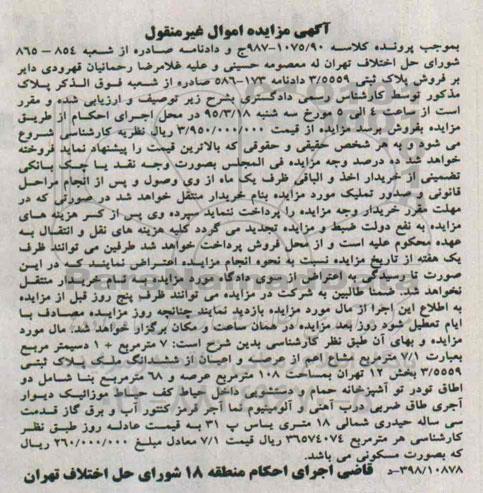 آگهی مزایده اموال غیرمنقول
بموجب پرونده کلاسه ۹۸۷-۱۰۷۵/۹۰ج و دادنامه صادره از شعبه ۸۵۴ - ۸۶۵
شورای حل اختلاف تهران له معصومه حسینی و علیه غلامرضا رحمانیان قهرودی دایر
بر فروش پلاک ثبتی ۳/۵۵۵۹ دادنامه ۱۷۳-۵۸۶ صادره از شعبه فوق الذکر پلاک
مذکور توسط کارشناس رسمی دادگستری بشرح زیر توصیف و ارزیابی شده و مقرر
است از ساعت ۴ الی ۶ مورخ سه شنبه ۹۵/۳/۱۸ در محل اجرای احکام از طریق
مزایده بفروش برسد مزایده از قیمت ۳/۹۵۰/۰۰۰/۰۰۰ ریال نظریه کارشناسی شروع
می شود و به هر شخص حقیقی و حقوقی که بالاترین قیمت را پیشنهاد نماید فروخته
خواهد شد ده درصد وجه مزایده فی المجلس بصورت وجه نقد یا چک بانکی
تضمینی از خریدار اخذ و الباقی ظرف یک ماه از وی وصول و پس از انجام مراحل
قانونی و صدور تملیک مورد مزایده بنام خریدار منتقل خواهد شد در صورتی که در
مهلت مقرر خریدار وجه مزایده را پرداخت ننماید سپرده وی پس از کسر هزینه های
مزایده به نفع دولت ضبط و مزایده تجدید می گردد کلیه هزینه های نقل و انتقال به
عهده محکوم علیه است و از محل فروش پرداخت خواهد شد طرفین می توانند ظرف
یک هفته از تاریخ مزایده نسبت به نحوه انجام مزایده اعتراض نمایند که در این
صورت تا رسیدگی به اعتراض از سوی دادگاه مورد مزایده سند به خریدار منتقل
نخواهد شد. ضمنا طالبین به شرکت در مزایده می توانند ظرف پنج روز قبل از مزایده
به اطلاع این اجرا از مال مورد مزایده بازدید نمایند چنانچه روز مزایده مصادف با
ایام تعطیل شود روز بعد مزایده در همان ساعت و مکان برگزار خواهد شد. مال مورد
مزایده و بهای آن طبق نظر کارشناسی بدین شرح است: ۷ مترمربع + ۱ دسیمتر مربع
بعبارت ۷/۱ مترمربع مشاع اعم از عرصه و اعیان از ششدانگ ملک پلاک ثبتی
۳/۵۵۵۹ بخش ۱۲ تهران به مساحت ۱۰۸ مترمربع عرصه و ۶۸ مترمربع بنا شامل دو
اطاق تودر تو آشپزخانه حمام و دستشویی داخل حیاط کف سازی موزائیک دیوار
آجری طاق ضربی درب آهنی و آلومینیوم نما آجر قرمز کنتور آب و برق گاز قدمت
سی ساله حیدری شمالی ۱۸ متری یاس پ ۳۱ به قیمت عادله روز طبق نظر
کارشناسی هر مترمربع ۳۶۵۷۴۰۷۴ ریال قیمت ۷/۱ معادل مبلغ ۲۶۰/۰۰۰/۰۰۰ ریال
که بصورت مسکونی می باشد.
۳۹۸/۱۰۸۷۸-د قاضی اجرای احکام منطقه ۱۸ شورای حل اختلاف تهران
ParsNamadData